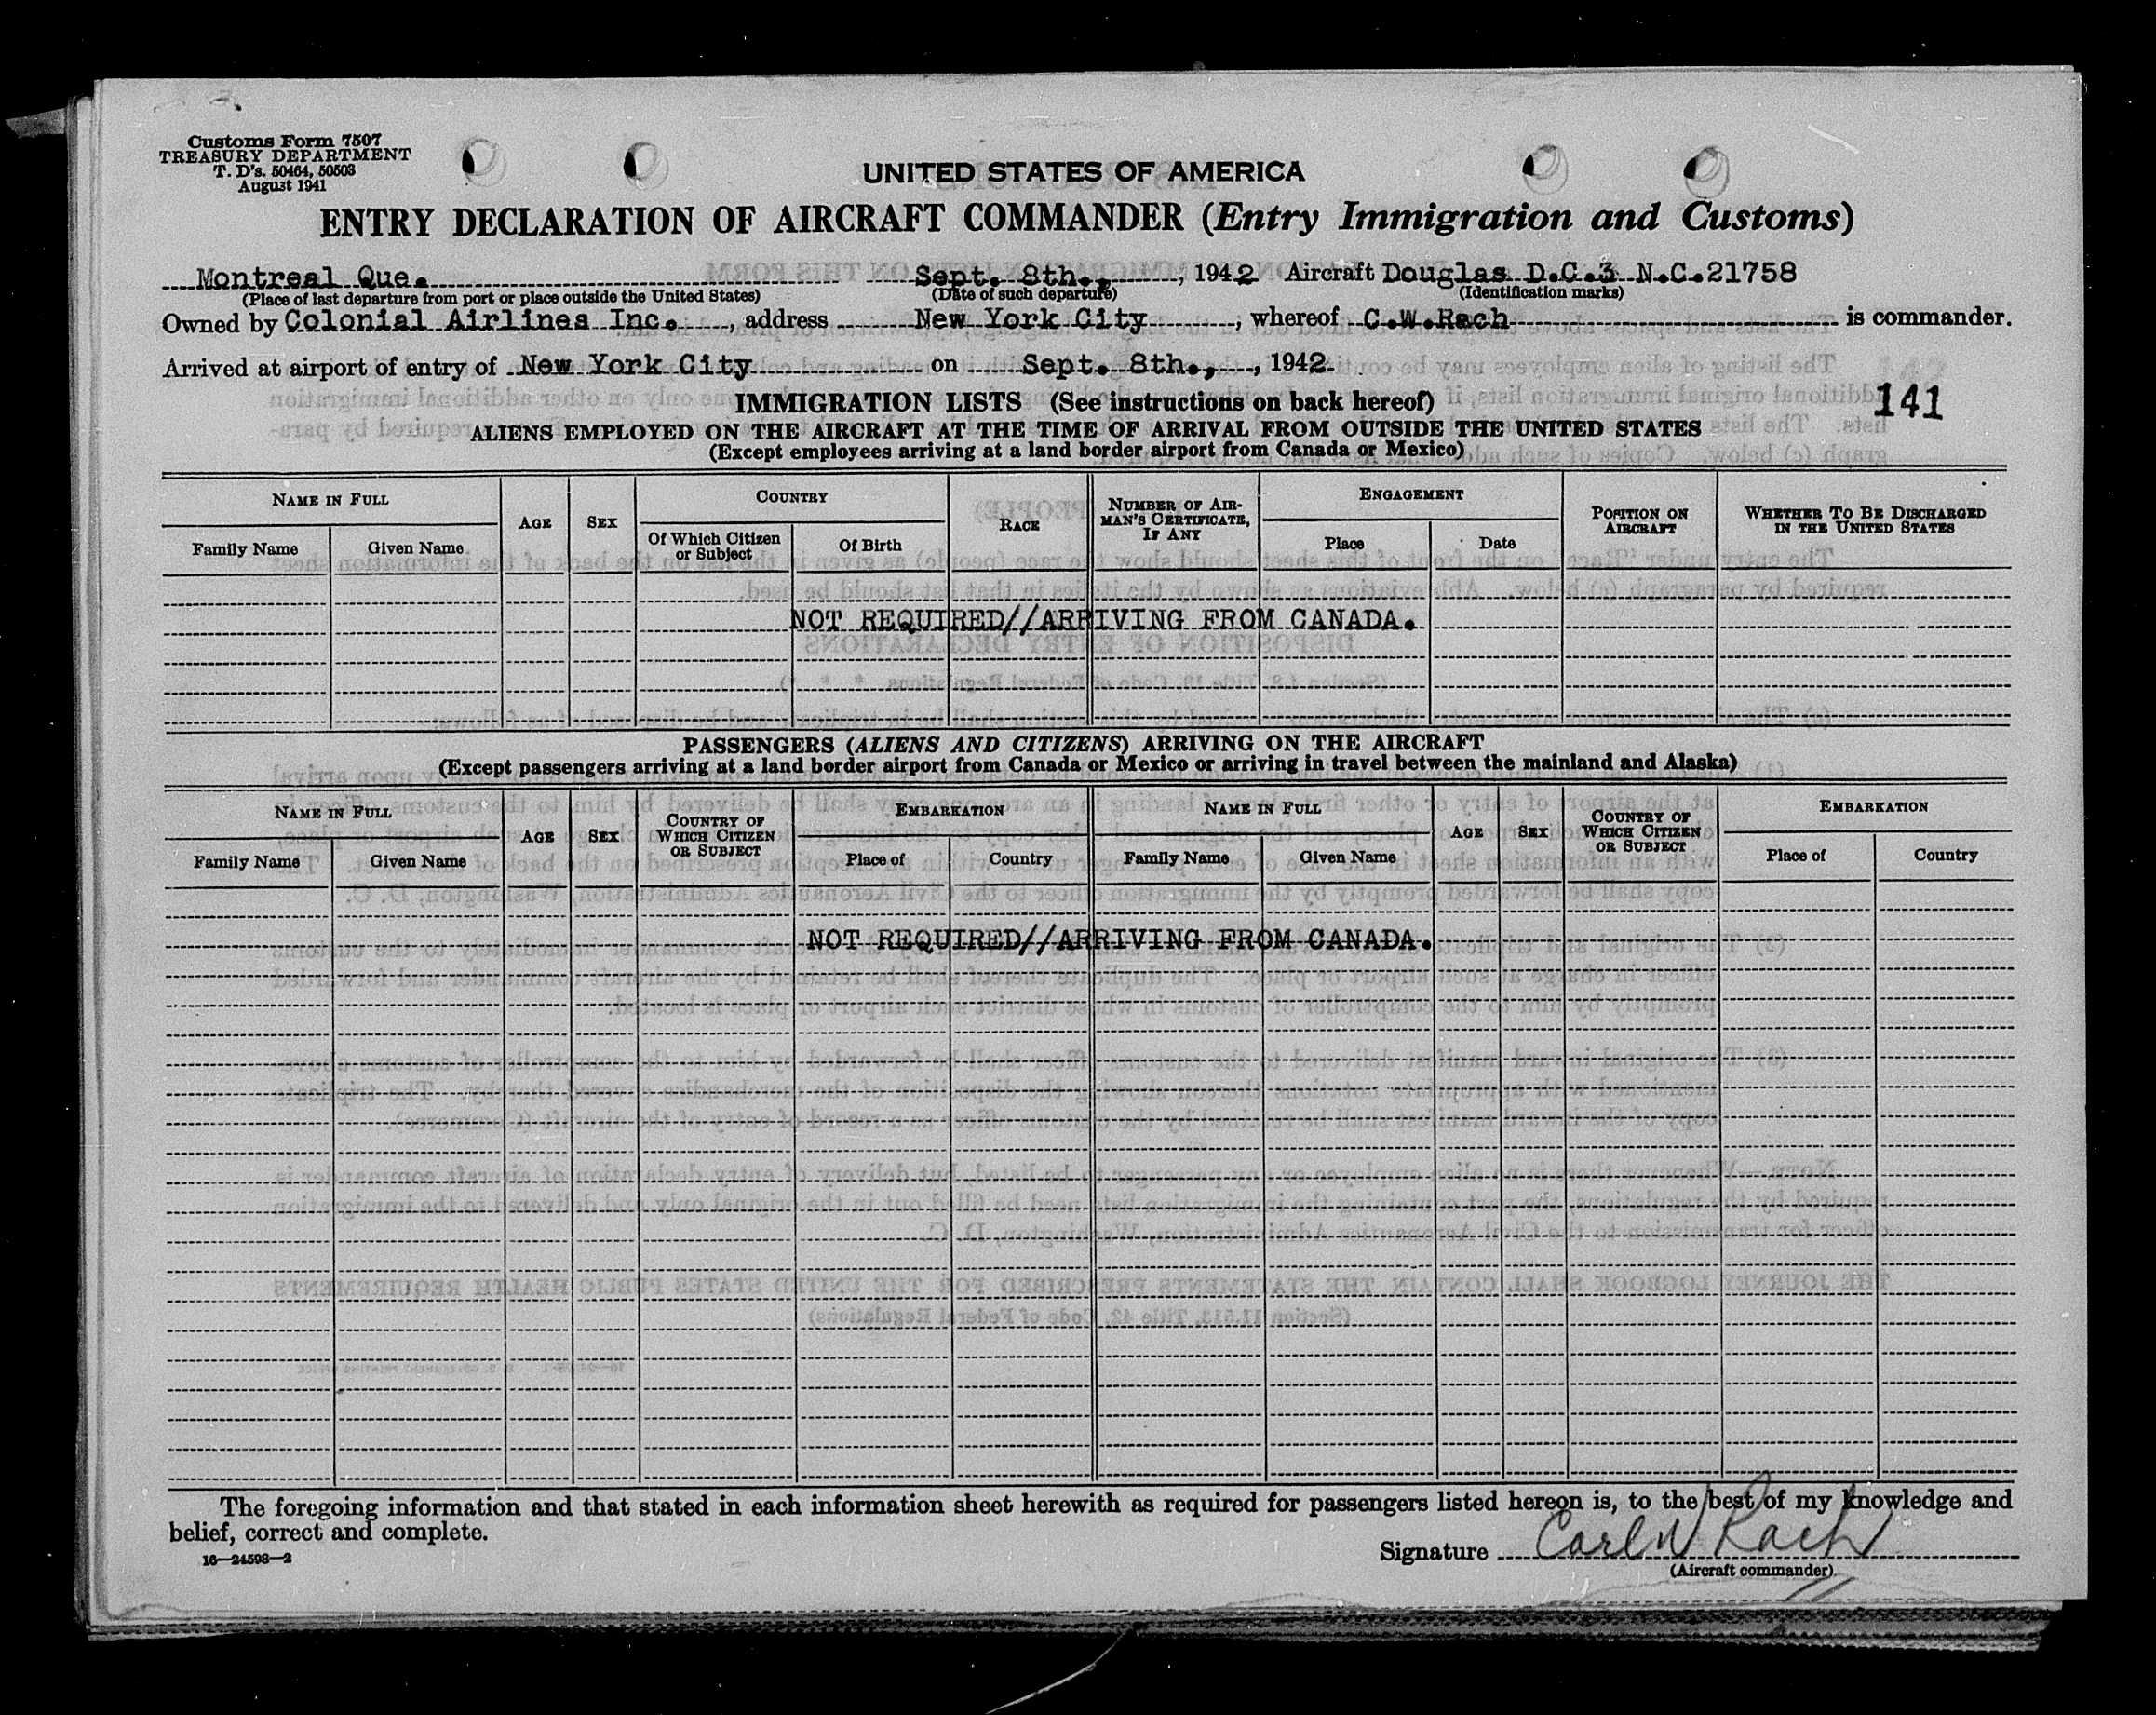 Customs Form 7507
TREASURY DEPARTMENT
T. D's. 50464, 50503
August 1941
UNITED STATES OF AMERICA
ENTRY DECLARATION OF AIRCRAFT COMMANDER (Entry Immigration and Customs)
Montreal Que. Sept. 8th., , 1942 Aircraft Douglas D.C.3 N.C.21758
(Place of last departure from port or place outside the United States) (Date of such departure) (Identification marks)
Owned by Colonial Airlines Inc. , address New York City , whereof C.W.Rach is commander.
Arrived at airport of entry of New York City on Sept. 8th., , 1942
IMMIGRATION LISTS (See instructions on back hereof)
141
ALIENS EMPLOYED ON THE AIRCRAFT AT THE TIME OF ARRIVAL FROM OUTSIDE THE UNITED STATES
(Except employees arriving at a land border airport from Canada or Mexico)
NAME IN FULL AGE SEX COUNTRY RACE NUMBER OF AIRMAN'S CERTIFICATE, IF ANY ENGAGEMENT POSITION ON AIRCRAFT WHETHER TO BE DISCHARGED IN THE UNITED STATES
Family Name Given Name Of Which Citizen or Subject Of Birth Place Date
NOT REQUIRED//ARRIVING FROM CANADA.
PASSENGERS (ALIENS AND CITIZENS) ARRIVING ON THE AIRCRAFT
(Except passengers arriving at a land border airport from Canada or Mexico or arriving in travel between the mainland and Alaska)
NAME IN FULL AGE SEX COUNTRY OF WHICH CITIZEN OR SUBJECT EMBARKATION NAME IN FULL AGE SEX COUNTRY OF WHICH CITIZEN OR SUBJECT EMBARKATION
Family Name Given Name Place of Country Family Name Given Name Place of Country
NOT REQUIRED//ARRIVING FROM CANADA.
The foregoing information and that stated in each information sheet herewith as required for passengers listed hereon is, to the best of my knowledge and
belief, correct and complete.
16—24598—2
Signature Carl W Rach
(Aircraft commander)